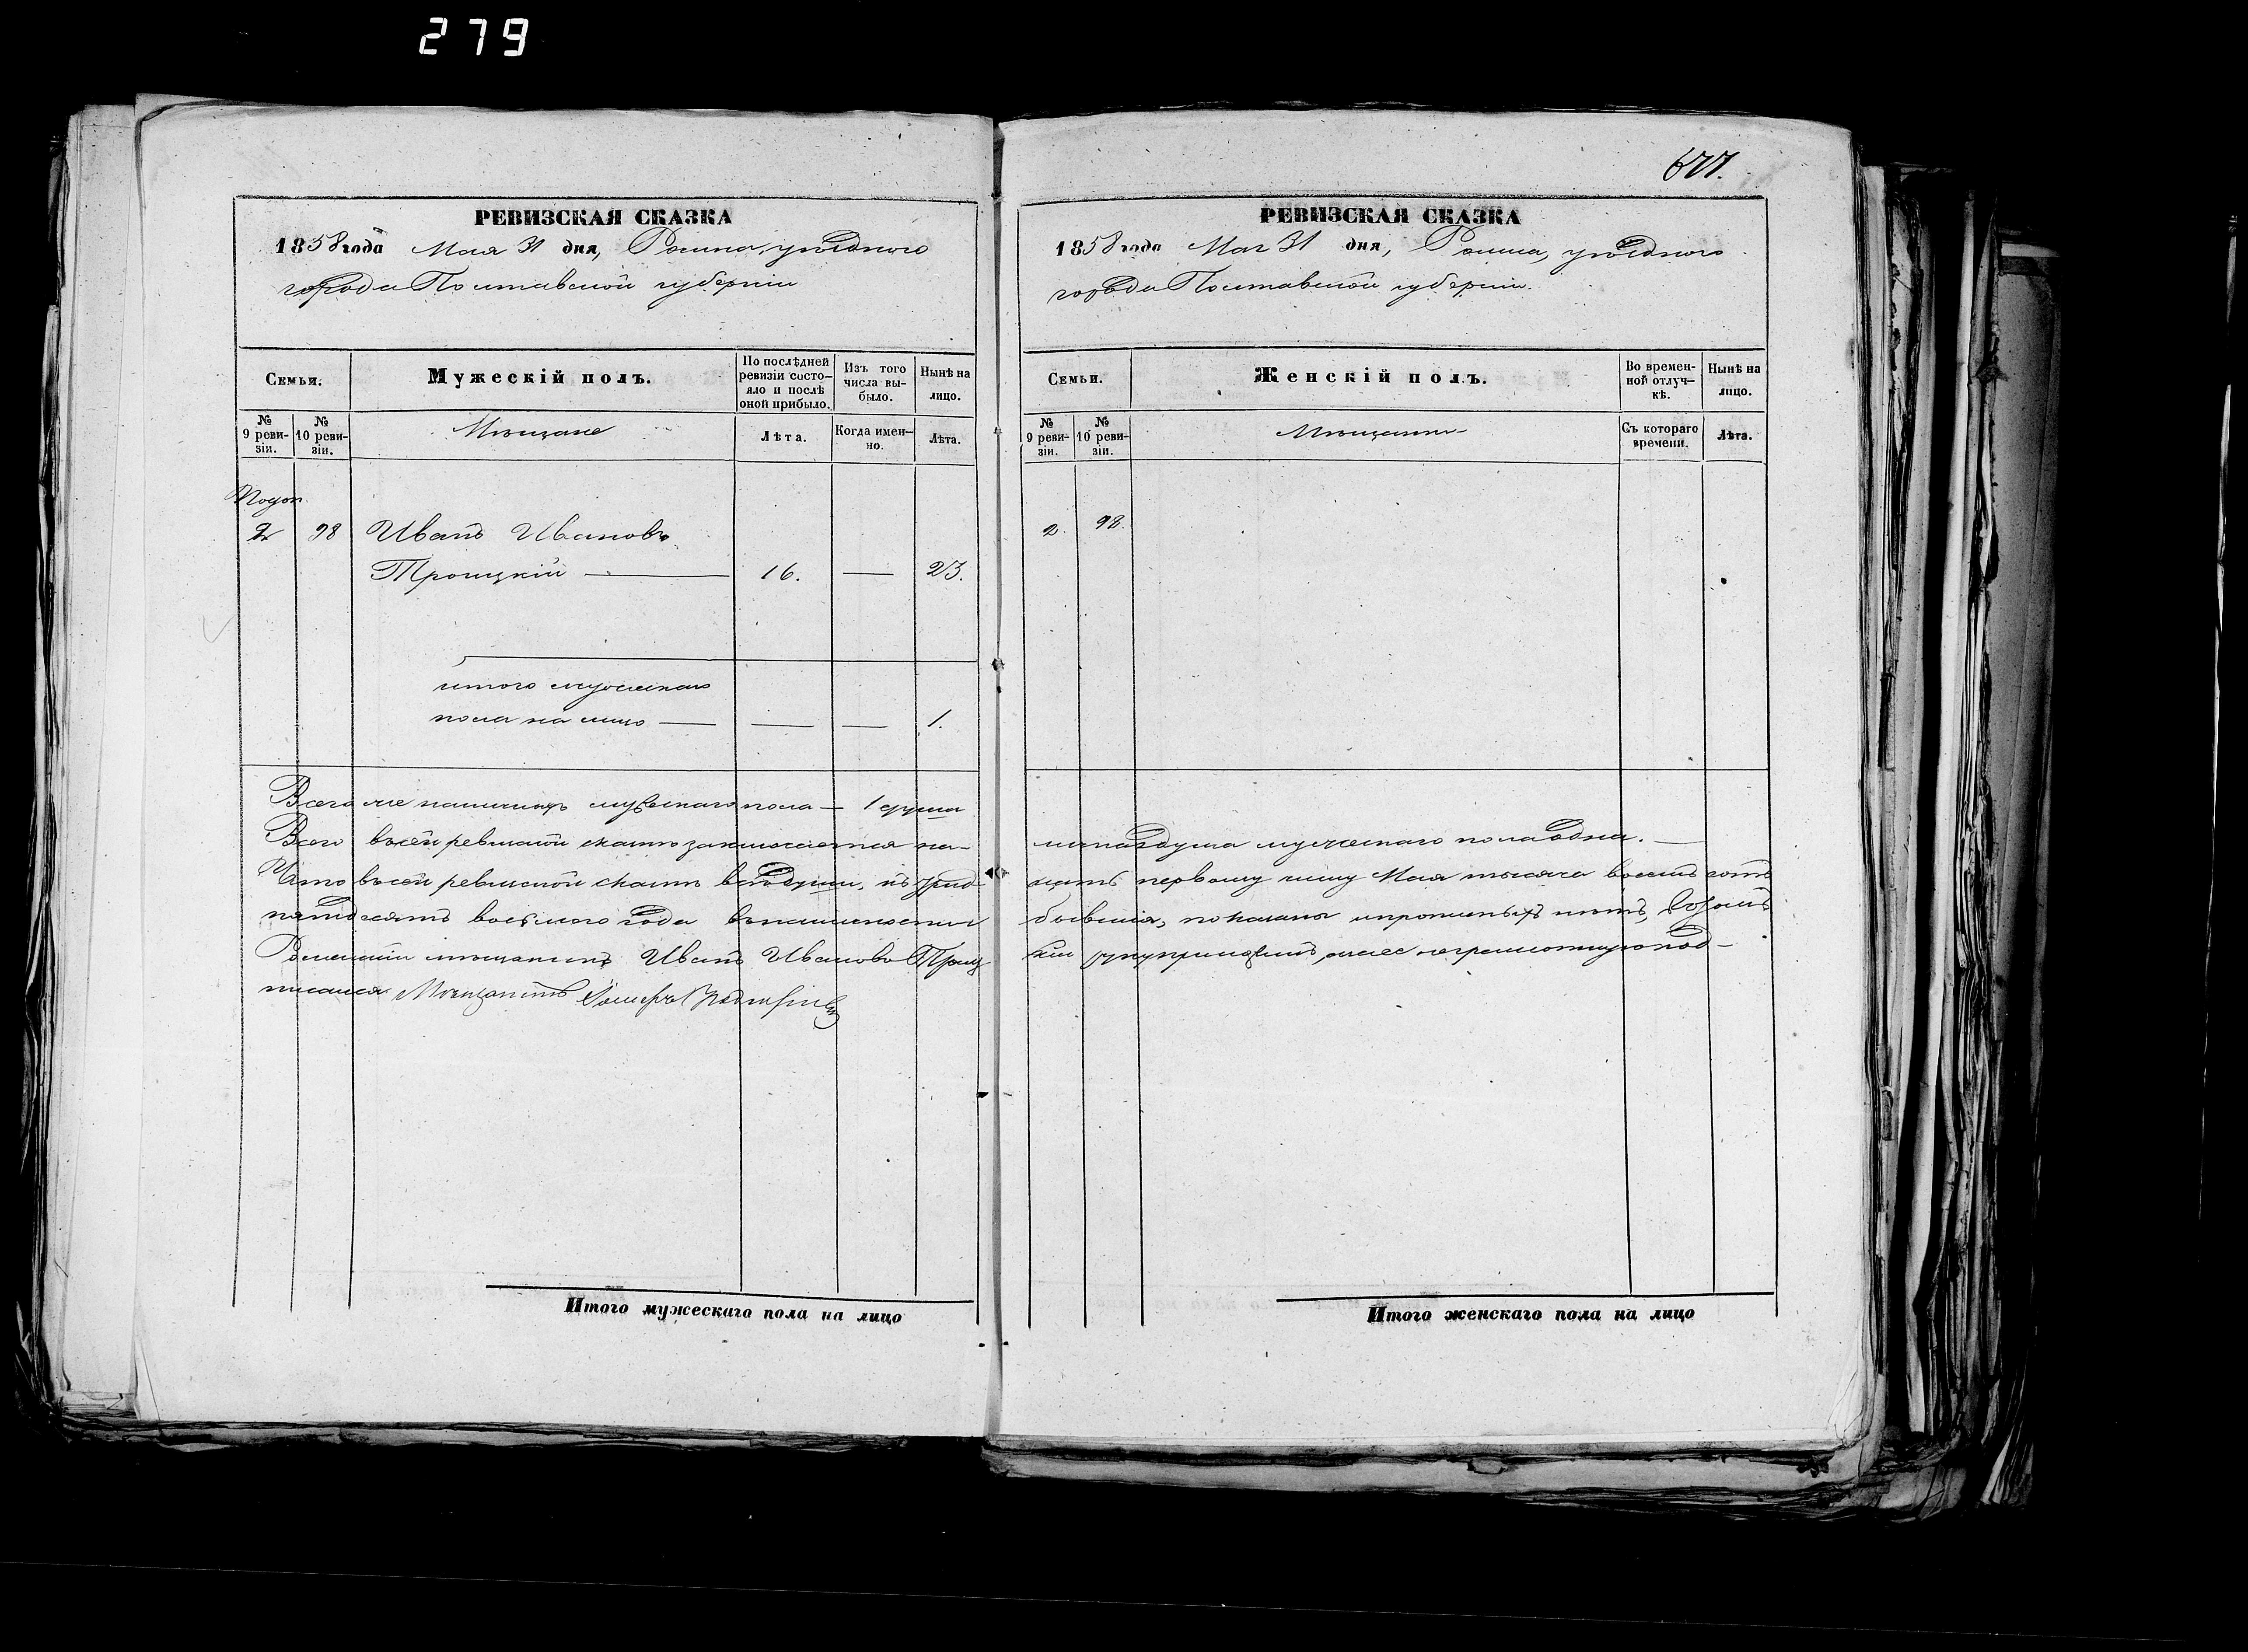 279
РЕВИЗСКАЯ СКАЗКА
1858 года Мая 31 дня, Ромна, уѣзднаго
города Полтавской губерніи
Семьи.
Мужескій полъ.
По послѣдней ревизіи состояло и послѣ оной прибыло.
Изъ того числа выбыло.
Нынѣ на лицо.
№ 9 ревизіи.
№ 10 ревизіи.
Мѣщане
Лѣта.
Когда именно.
Лѣта.
2 98 Иванъ Ивановъ
Троицкій — 16. — 23.
итого мужескаго
пола на лицо — — — 1.
Всего же наличныхъ мужескаго пола — 1 душа
Всего въ сей ревизской сказкѣ заключается на-
Что въ сей ревизской сказкѣ всѣ души, къ трид-
пятьдесятъ восьмаго года въ наличности
Роменскій мѣщанинъ Иванъ Ивановъ Троиц
писался Мѣщанинъ
677.
РЕВИЗСКАЯ СКАЗКА
1858 года Мая 31 дня, Ромна, уѣзднаго
города Полтавской губерніи.
Семьи.
Женскій полъ.
Во временной отлучкѣ.
Нынѣ на лицо.
№ 9 ревизіи.
№ 10 ревизіи.
Съ котораго времени.
Лѣта.
2. 98.
личная душа мужескаго пола одна. —
цать первому числу Мая тысяча восемь сотъ
бывшія, показаны и прописныхъ нѣтъ,
кій неграмотнаго под-
Итого мужескаго пола на лицо
Итого женскаго пола на лицо